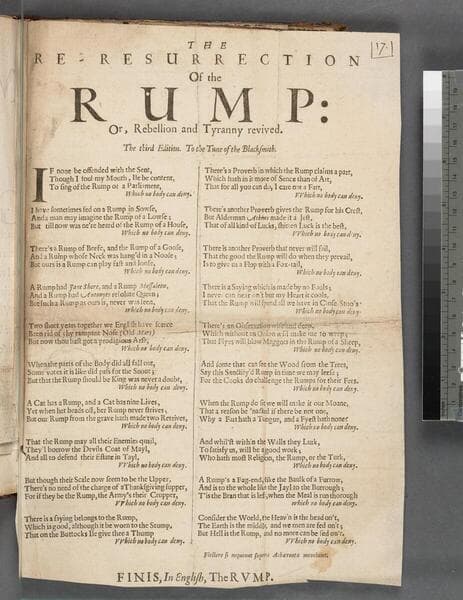 THE
17.
RE-RESURRECTION
Of the
RUMP:
Or, Rebellion and Tyranny revived.
The third Edition. To the Tune of the Blacksmith.
IF none be offended with the Scent,
Though I foul my Mouth, Ile be content,
To sing of the Rump of a Parliament,
Which no body can deny.
I have sometimes fed on a Rump in Sowse,
And a man may imagine the Rump of a Lowse;
But till now was ne're heard of the Rump of a House,
Which no body can deny.
There's a Rump of Beefe, and the Rump of a Goose,
And a Rump whose Neck was hang'd in a Noose;
But ours is a Rump can play fast and loose,
Which no body can deny.
A Rump had Jane Shore, and a Rump Messaleen,
And a Rump had Antonyes resolute Queen;
But such a Rump as ours is, never was seen,
Which no body can deny.
Two short years together we English have scarce
Been rid of thy rampant Nose (Old
But now thou hast got a prodigious Arse,
Which no body can deny.
When the parts of the Body did all fall out,
Some votes it is like did pass for the Snout;
But that the Rump should be King was never a doubt,
Which no body can deny.
A Cat has a Rump, and a Cat has nine Lives,
Yet when her heads off, her Rump never strives;
But our Rump from the grave hath made two Retrives,
Which no body can deny.
That the Rump may all their Enemies quail,
They borrow the Devils Coat of Mayl,
And all to defend their Estate in Tayl,
VVhich no body can deny.
But though their Scale now seem to be the Upper,
There's no need of the charge of a Thanksgiving supper,
For if they be the Rump, the Army's their Crupper,
VVhich no body can deny.
There is a saying belongs to the Rump,
Which is good, although it be worn to the Stump,
That on the Buttocks Ile give thee a Thump
VVhich no body can deny.
There's a Proverb in which the Rump claims a part,
Which hath in it more of Sence than of Art,
That for all you can do, I care not a Fart,
VVhich no body can deny.
There's another Proverb gives the Rump for his Crest,
But Alderman Atkins made it a Jest,
That of all kind of Lucks, shitten Luck is the best,
VVhich no body can deny.
There is another Proverb that never will fail,
That the good the Rump will do when they prevail,
Is to give us a Flap with a Fox-tail,
Which no body can deny.
There is a Saying which is made by no Fools;
I never can hear on't but my Heart it cools,
That the Rump will spend all we have in Close-Stools
Which no body can deny.
There's an Observation wise and deep,
Which without an Onion will make me to weep;
That Flyes will blow Maggots in the Rump of a Sheep,
Which no body can deny.
And some that can see the Wood from the Trees,
Say this Sanctify'd Rump in time we may leese;
For the Cooks do challenge the Rumps for their Fees.
Which no body can deny.
When the Rump do sit we will make it our Moane,
That a reason be 'nacted if there be not one,
Why a Fart hath a Tongue, and a Fyest hath none?
VVhich no body can deny.
And whil'st within the Walls they Lurk,
To satisfy us, will be a good work,
Who hath most Religion, the Rump, or the Turk,
Which no body can deny.
A Rump's a Fag-end, like the Baulk of a Furrow,
And is to the whole like the Jayl to the Borough;
'Tis the Bran that is left, when the Meal is run thorough
which no body can deny.
Consider the World, the Heav'n is the head on't,
The Earth is the middle, and we men are fed on't;
But Hell is the Rump, and no more can be sed on't,
VVhich no body can deny.
Flectere si nequeunt superos Acharonta movebunt.
FINIS, In English, The RVMP.